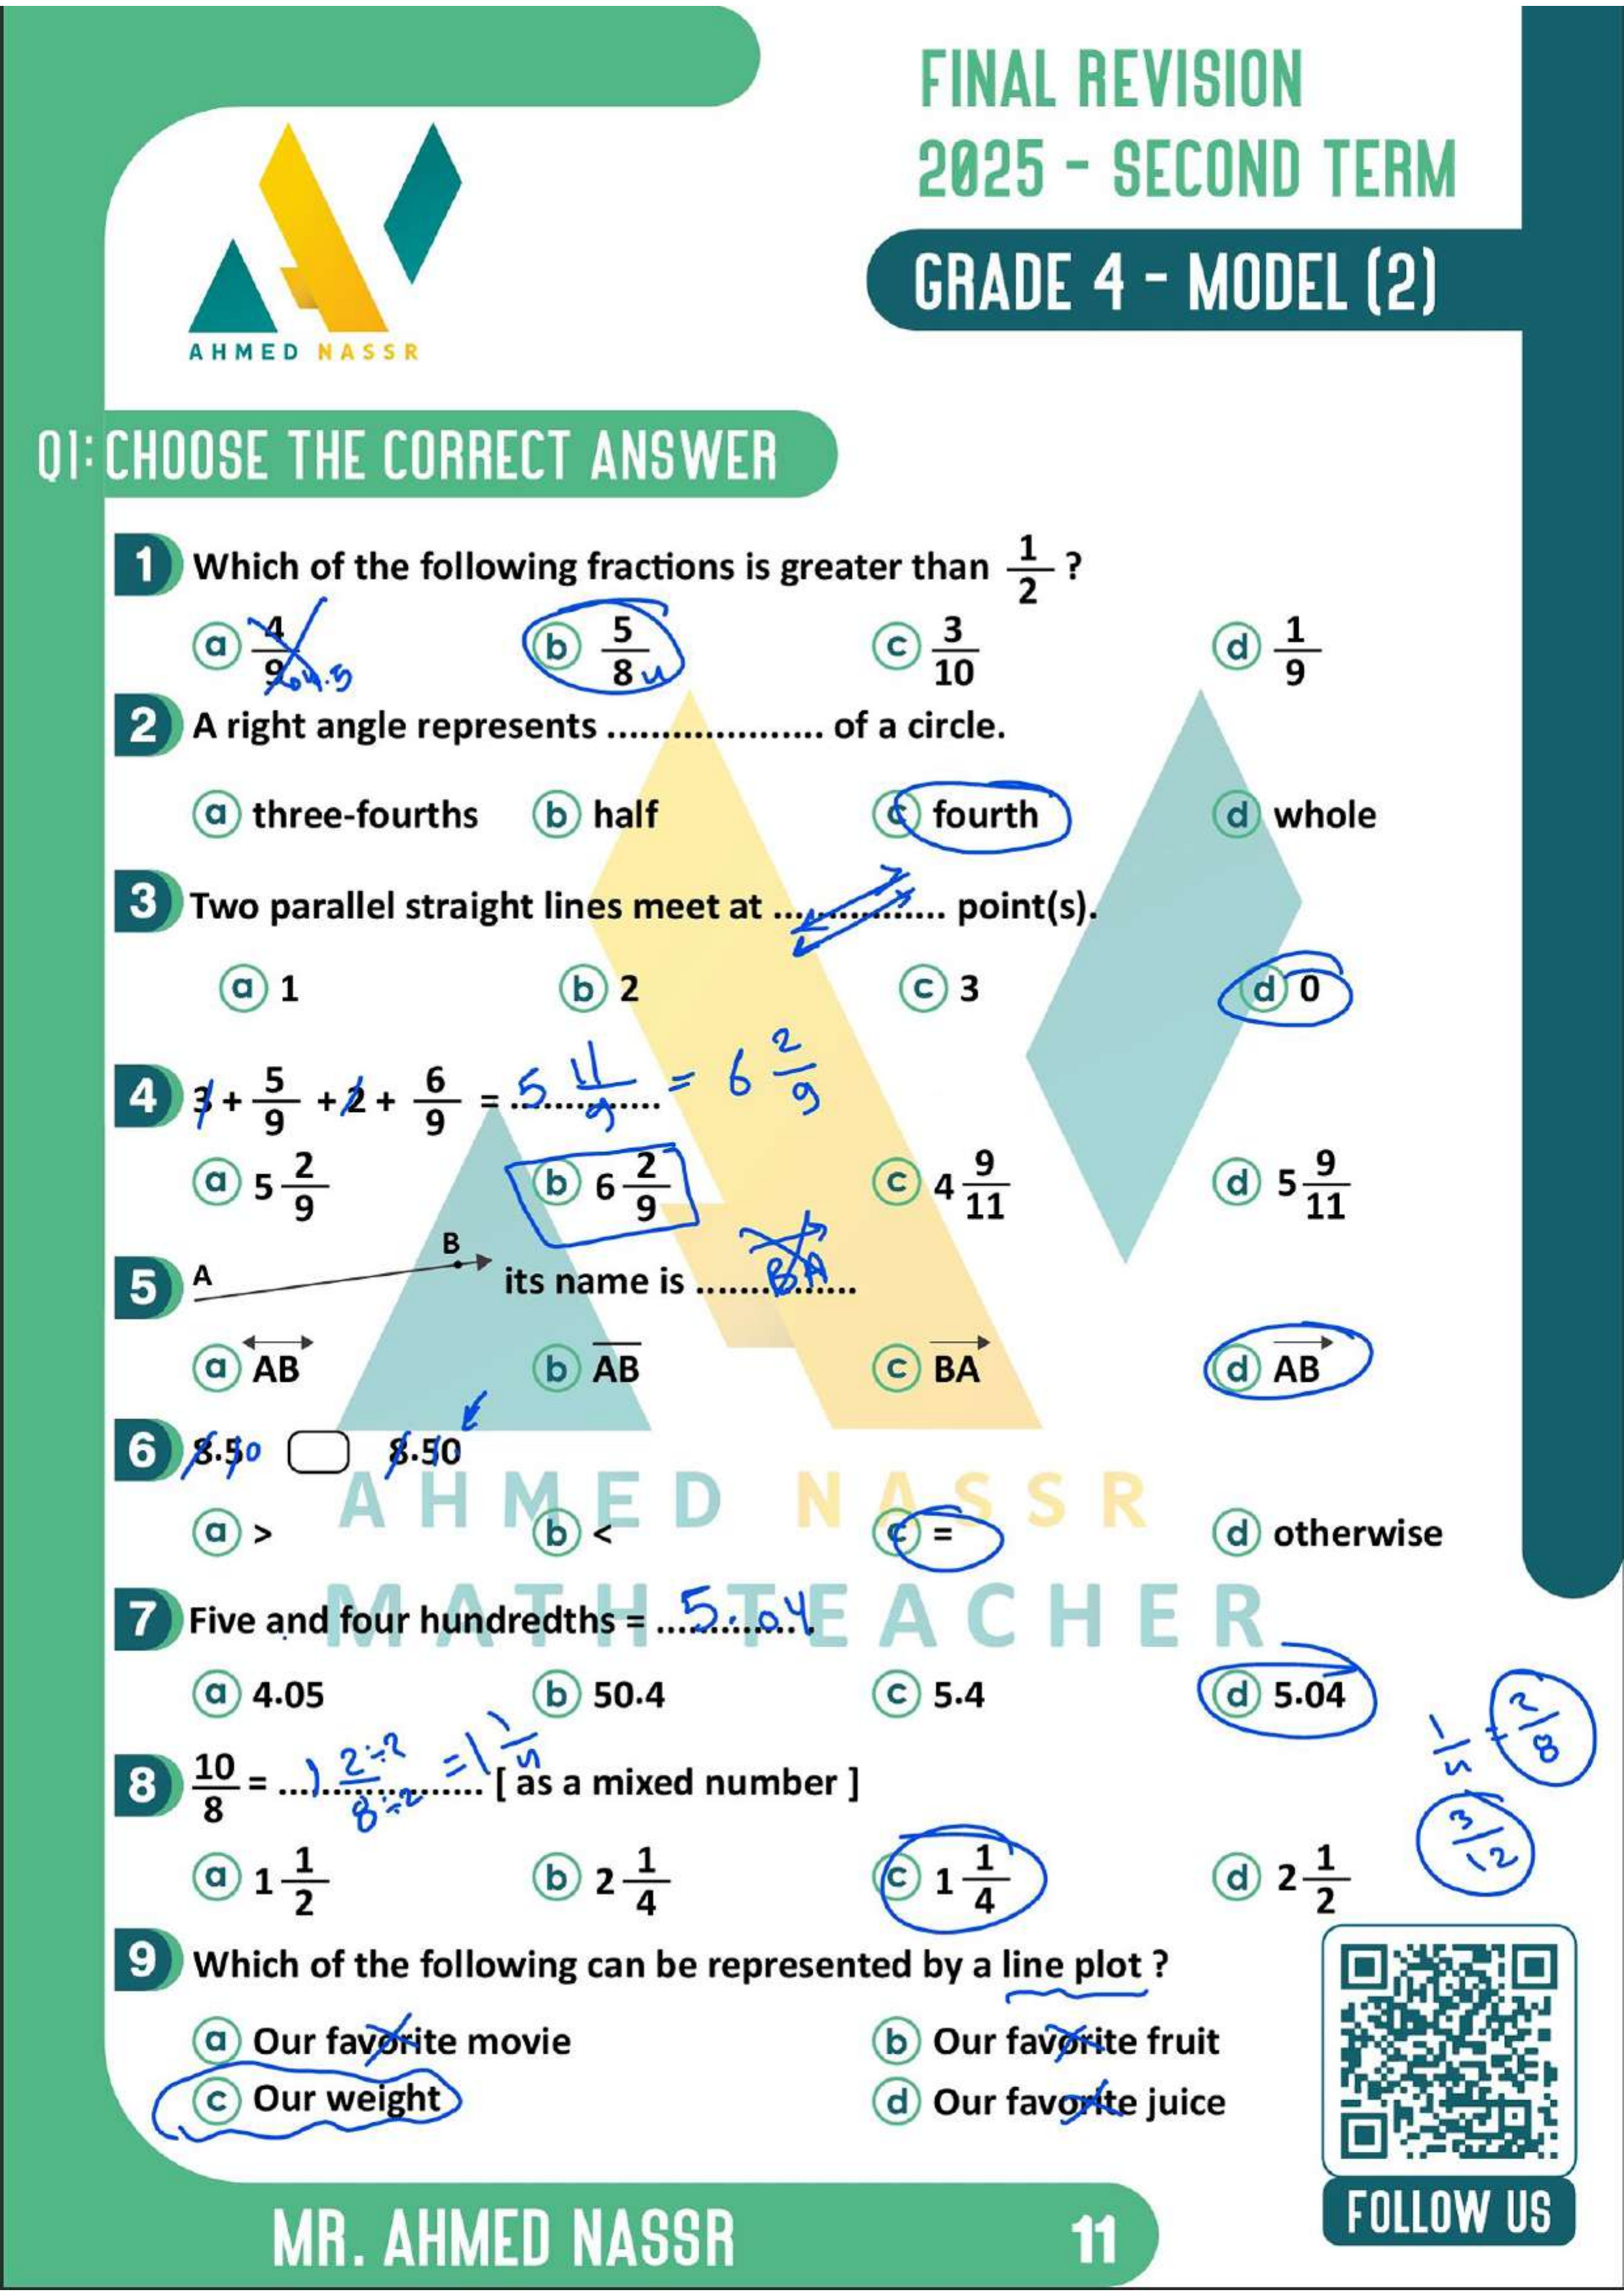 FINAL REVISION
2025 - SECOND TERM
GRADE 4 - MODEL (2)
AHMED NASSR
Q1: CHOOSE THE CORRECT ANSWER
1 Which of the following fractions is greater than 1/2 ?
a 4/9 4.5 b 5/8 4 c 3/10 d 1/9
2 A right angle represents .................... of a circle.
a three-fourths b half c fourth d whole
3 Two parallel straight lines meet at ................ point(s).
a 1 b 2 c 3 d 0
4 3 + 5/9 + 2 + 6/9 = 5 11/9 = 6 2/9
a 5 2/9 b 6 2/9 c 4 9/11 d 5 9/11
5 A B its name is ............... BA
a AB b AB c BA d AB
6 8.50 8.50
a > b < c = d otherwise
AHMED NASSR
7 Five and four hundredths = ...5.04
MATH TEACHER
a 4.05 b 50.4 c 5.4 d 5.04
1/4 = 2/8
8 10/8 = 1 2÷2/8÷2 = 1 1/4 [ as a mixed number ]
3/12
a 1 1/2 b 2 1/4 c 1 1/4 d 2 1/2
9 Which of the following can be represented by a line plot ?
a Our favorite movie b Our favorite fruit
c Our weight d Our favorite juice
MR. AHMED NASSR 11
FOLLOW US